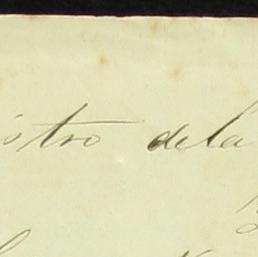 istro dela